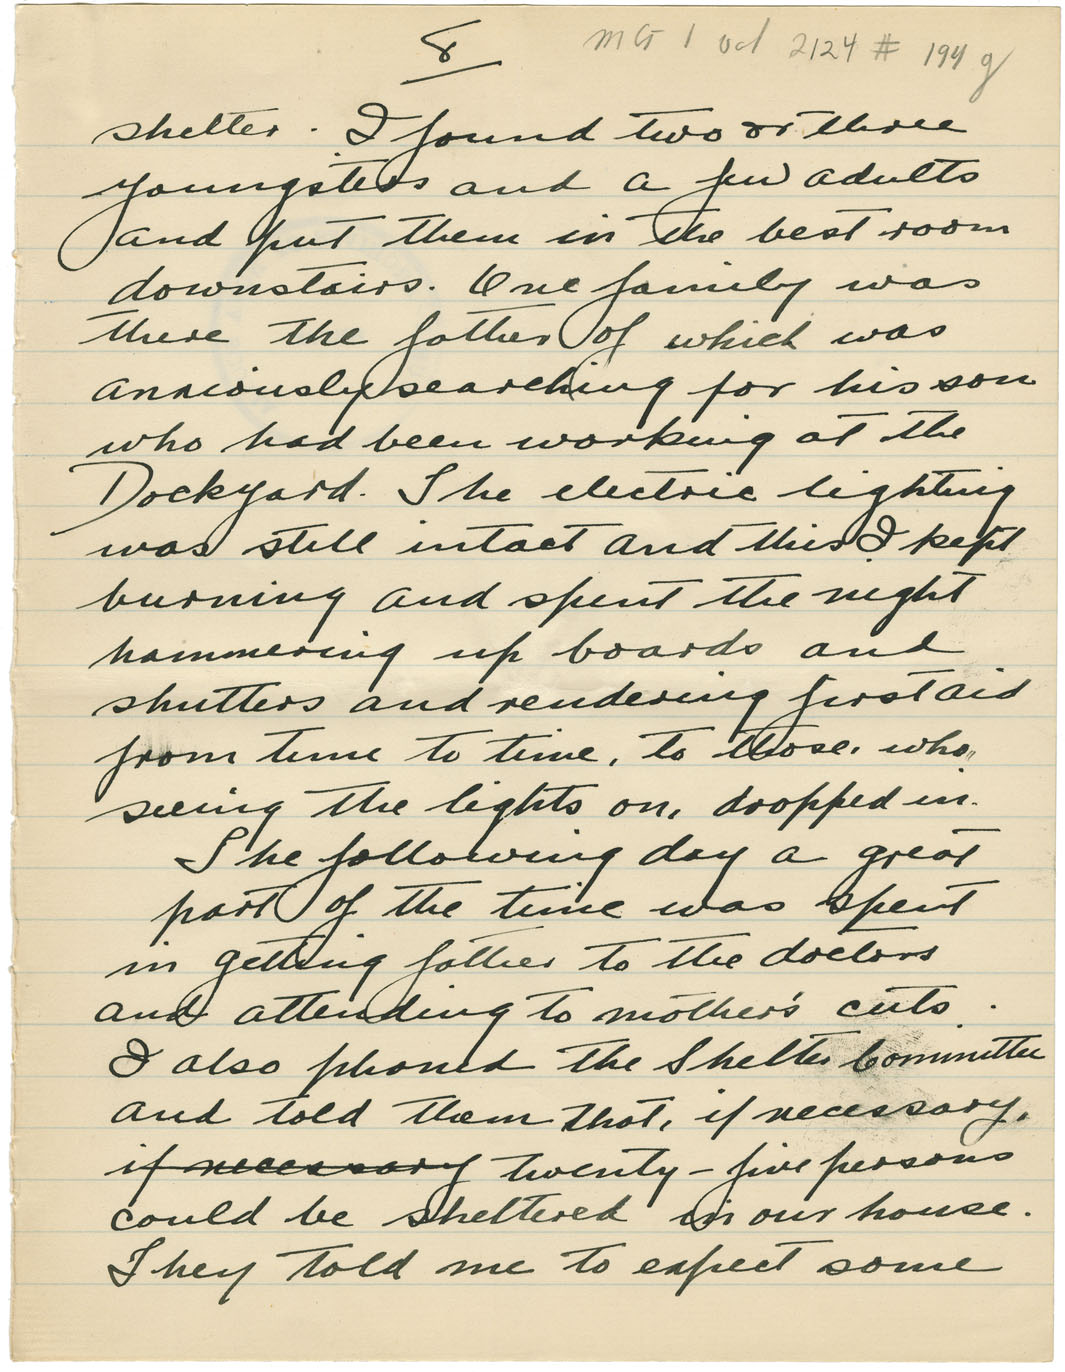 8
MG 1 Vol 2124 # 194 g
shelter. I found two or three
youngsters and a few adults
and put them in the best room
downstairs. One family was
there the father of which was
anxiously searching for his son
who had been working at the
Dockyard. The electric lighting
was still intact and this I kept
burning and spent the night
hammering up boards and
shutters and rendering first aid
from time to time, to those, who,
seeing the lights on, dropped in.
The following day a great
part of the time was spent
in getting father to the doctors
and attending to mother's cuts.
I also phoned the Shelter Committee
and told them that, if necessary,
if necessary twenty-five persons
could be sheltered in our house.
They told me to expect some